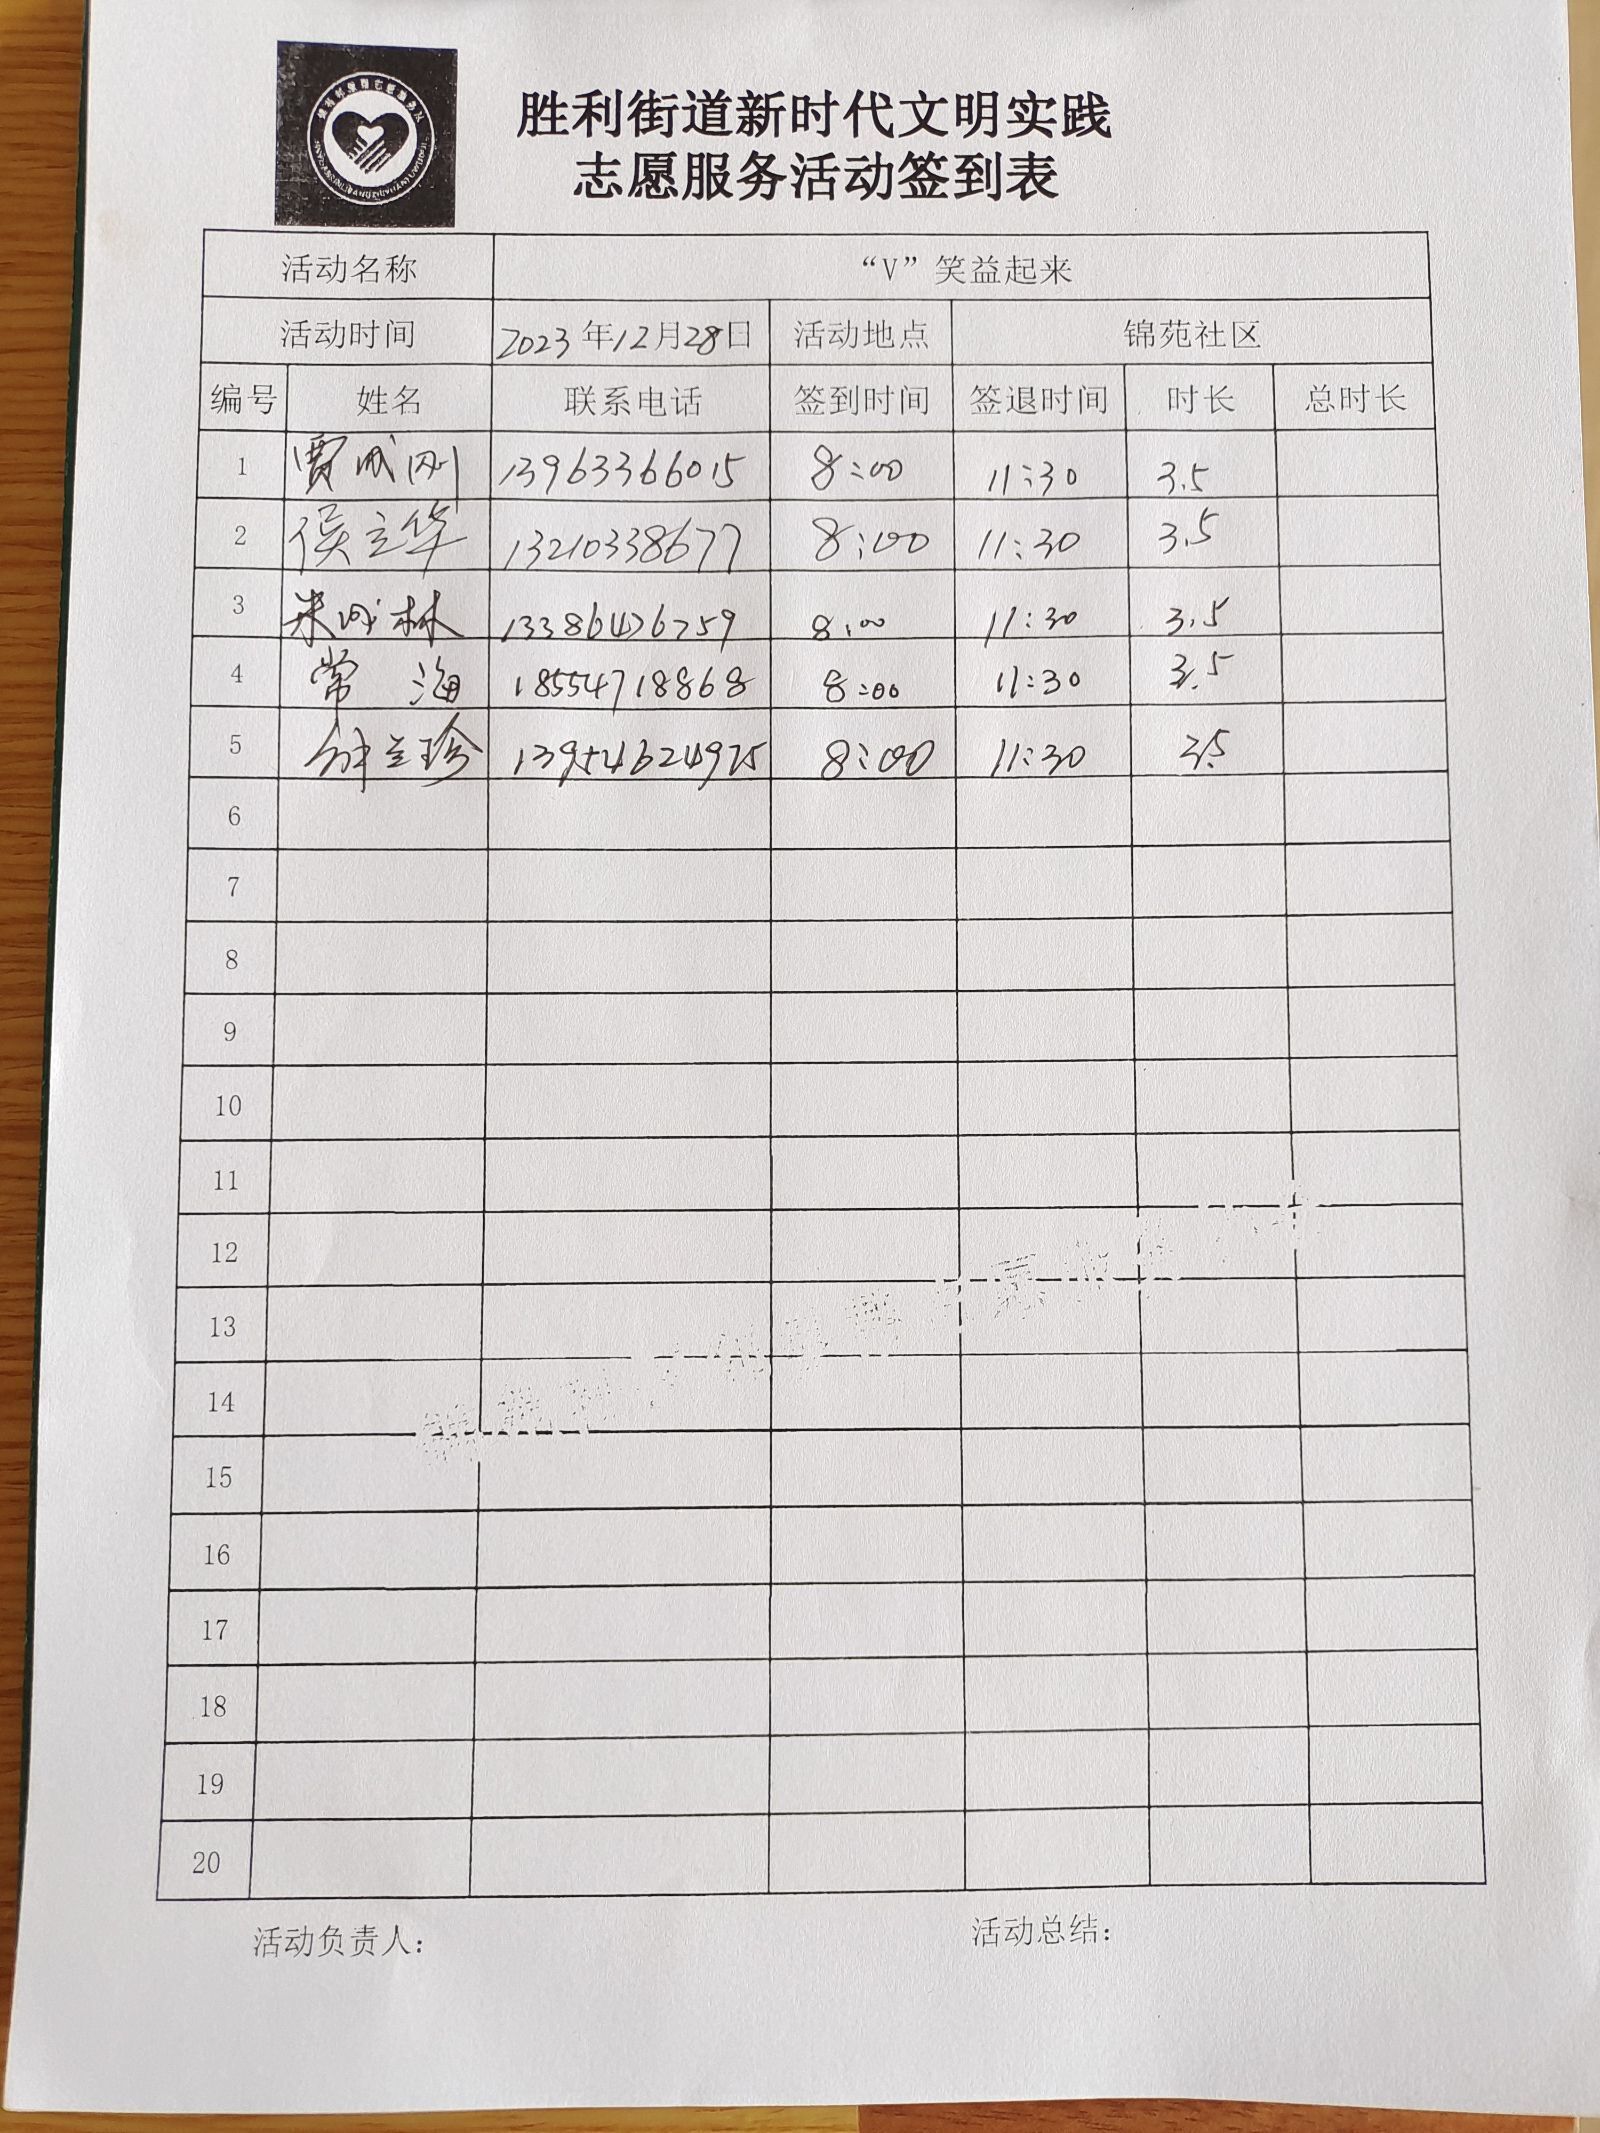 胜利街道新时代文明实践
志愿服务活动签到表
活动名称 “V”笑益起来
活动时间 2023年12月28日 活动地点 锦苑社区
编号 姓名 联系电话 签到时间 签退时间 时长 总时长
1 贾成刚 13963366015 8:00 11:30 3.5
2 侯立华 13210338677 8:00 11:30 3.5
3 朱成林 13386476759 8:00 11:30 3.5
4 常海 18554718868 8:00 11:30 3.5
5 兰珍 13954624975 8:00 11:30 3.5
6
7
8
9
10
11
12
13
14
15
16
17
18
19
20
活动负责人: 活动总结: